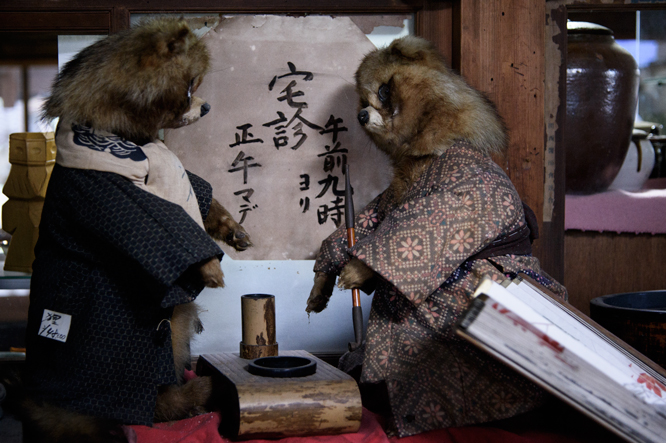 宅診
午前九時
ヨリ
正午マデ